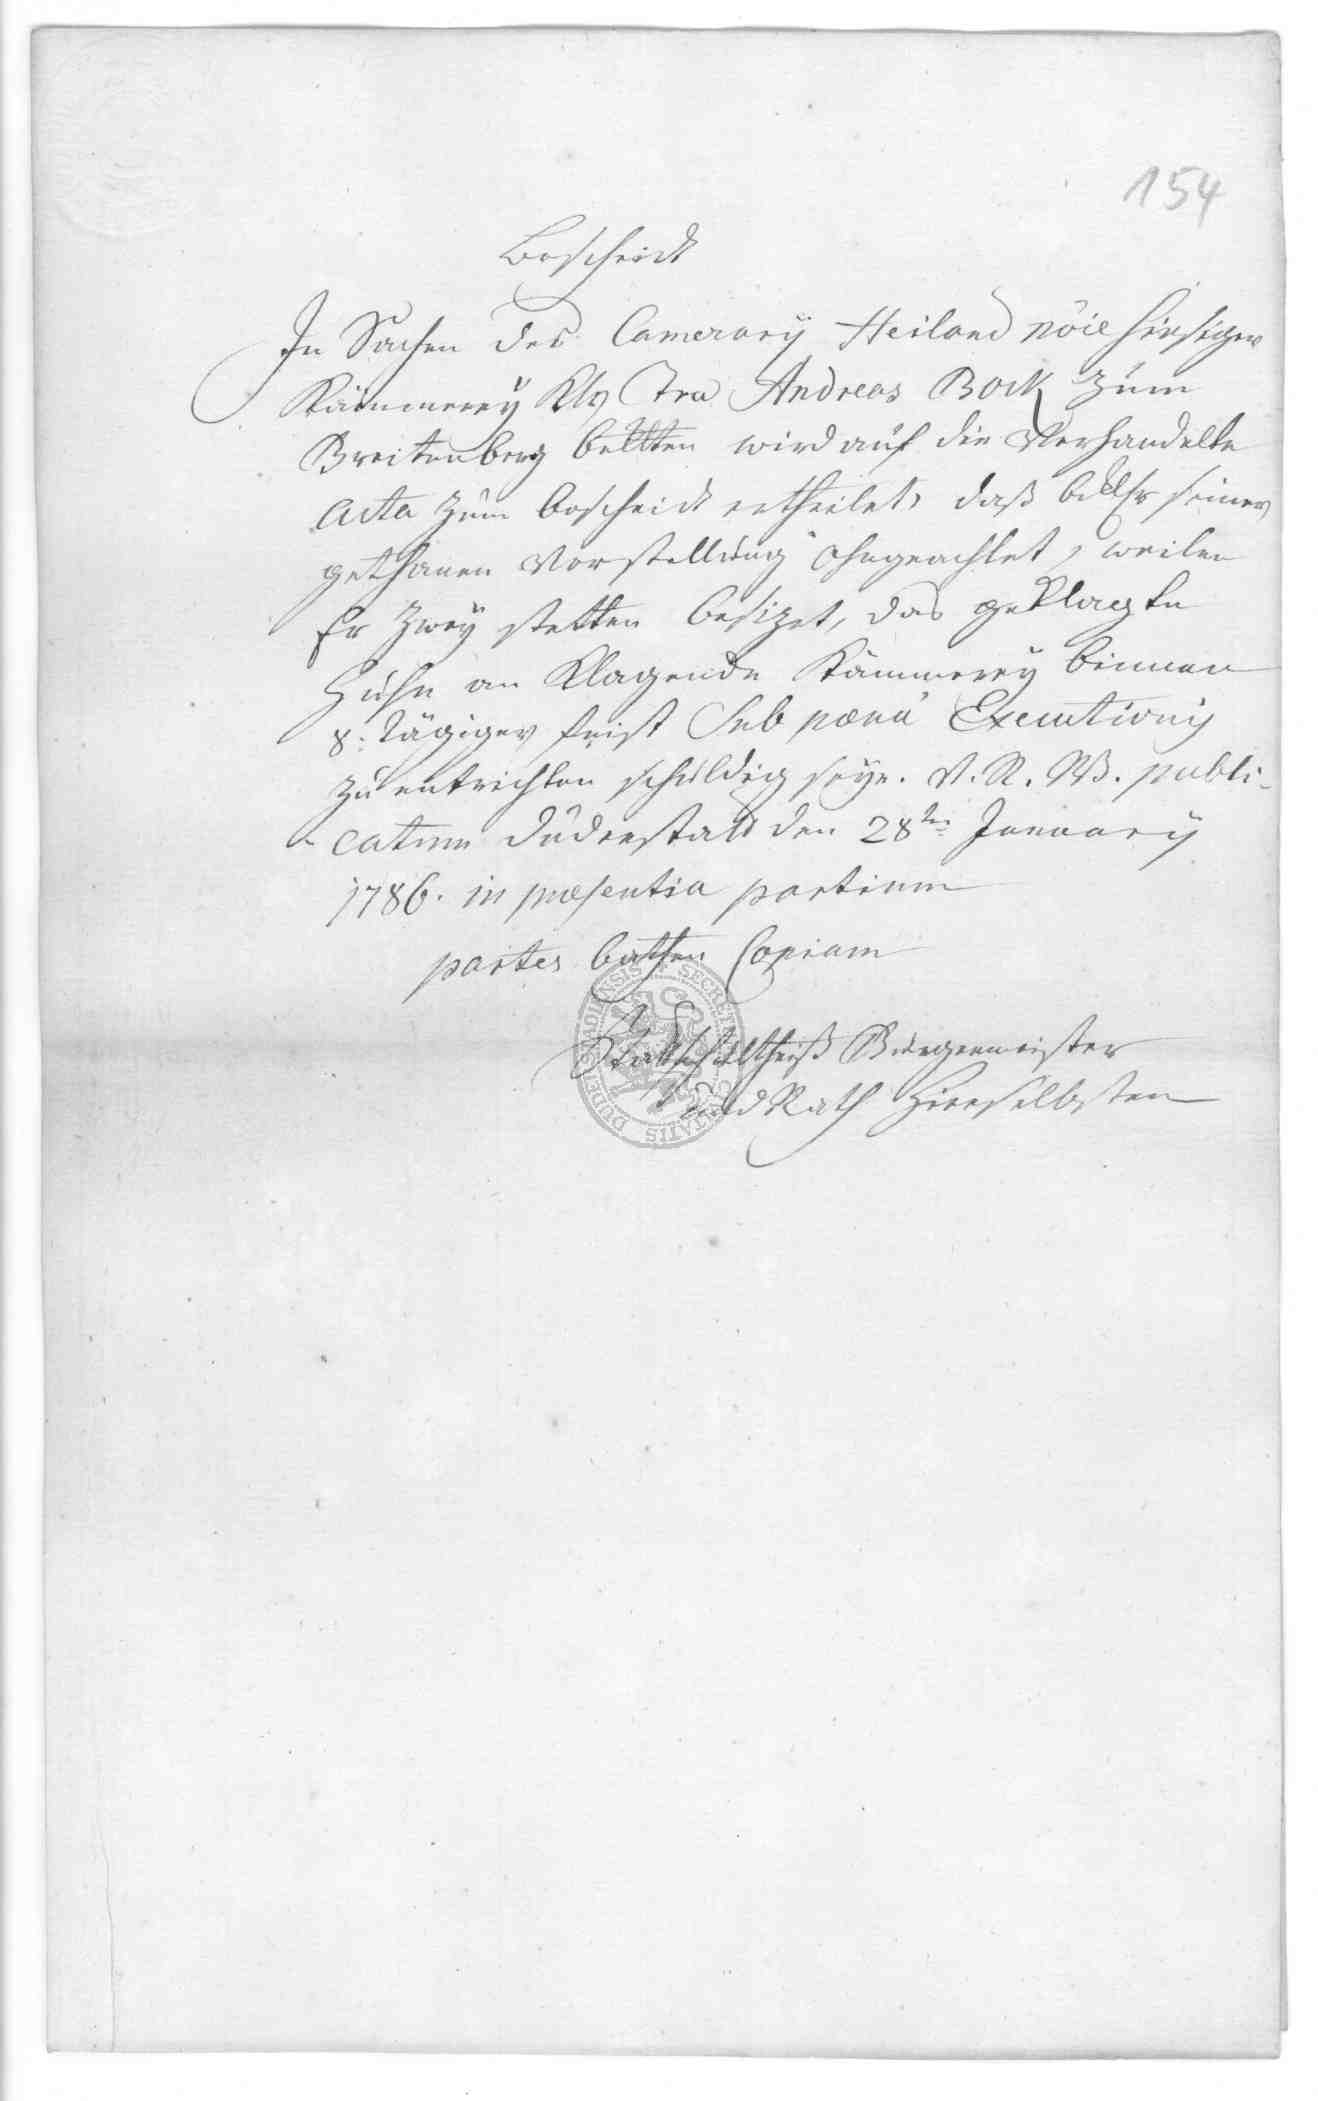 154
Bescheidt
In Sachen des Camerary Heiland nõie hiesiger
Kämmerey Klg Ctra Andreas Bock zum
Breitenberg beklten wird auf die Verhandelte
Acta zum bescheidt ertheilet, daß bekl. seiner
gethanen Vorstellung ohngeachtet, weilen
Er zwey stetten besizet, das geklagte
Huhn an Klagende Kämmerey binnen
8. tägiger frist Sub pœna Executionis
zu entrichten schuldig seye. V. R. W. publi-
catum duderstatt den 28ten January
1786. in præsentia partium
partes bathen Copiam
Stattschultheiß Bürgermeister
und Rath Hierselbsten